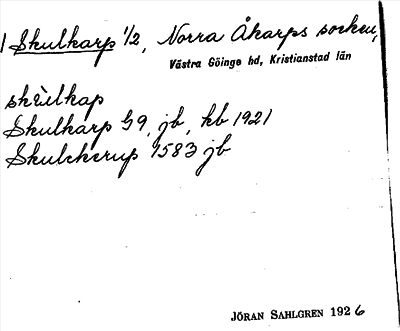 1 Skulkarp 1/2, Norra Åkarps socken,
Västra Göinge hd, Kristianstad län
Skulkarp 59, jb, kb 1921
Skulckerup 1583 jb
JÖRAN SAHLGREN 1926